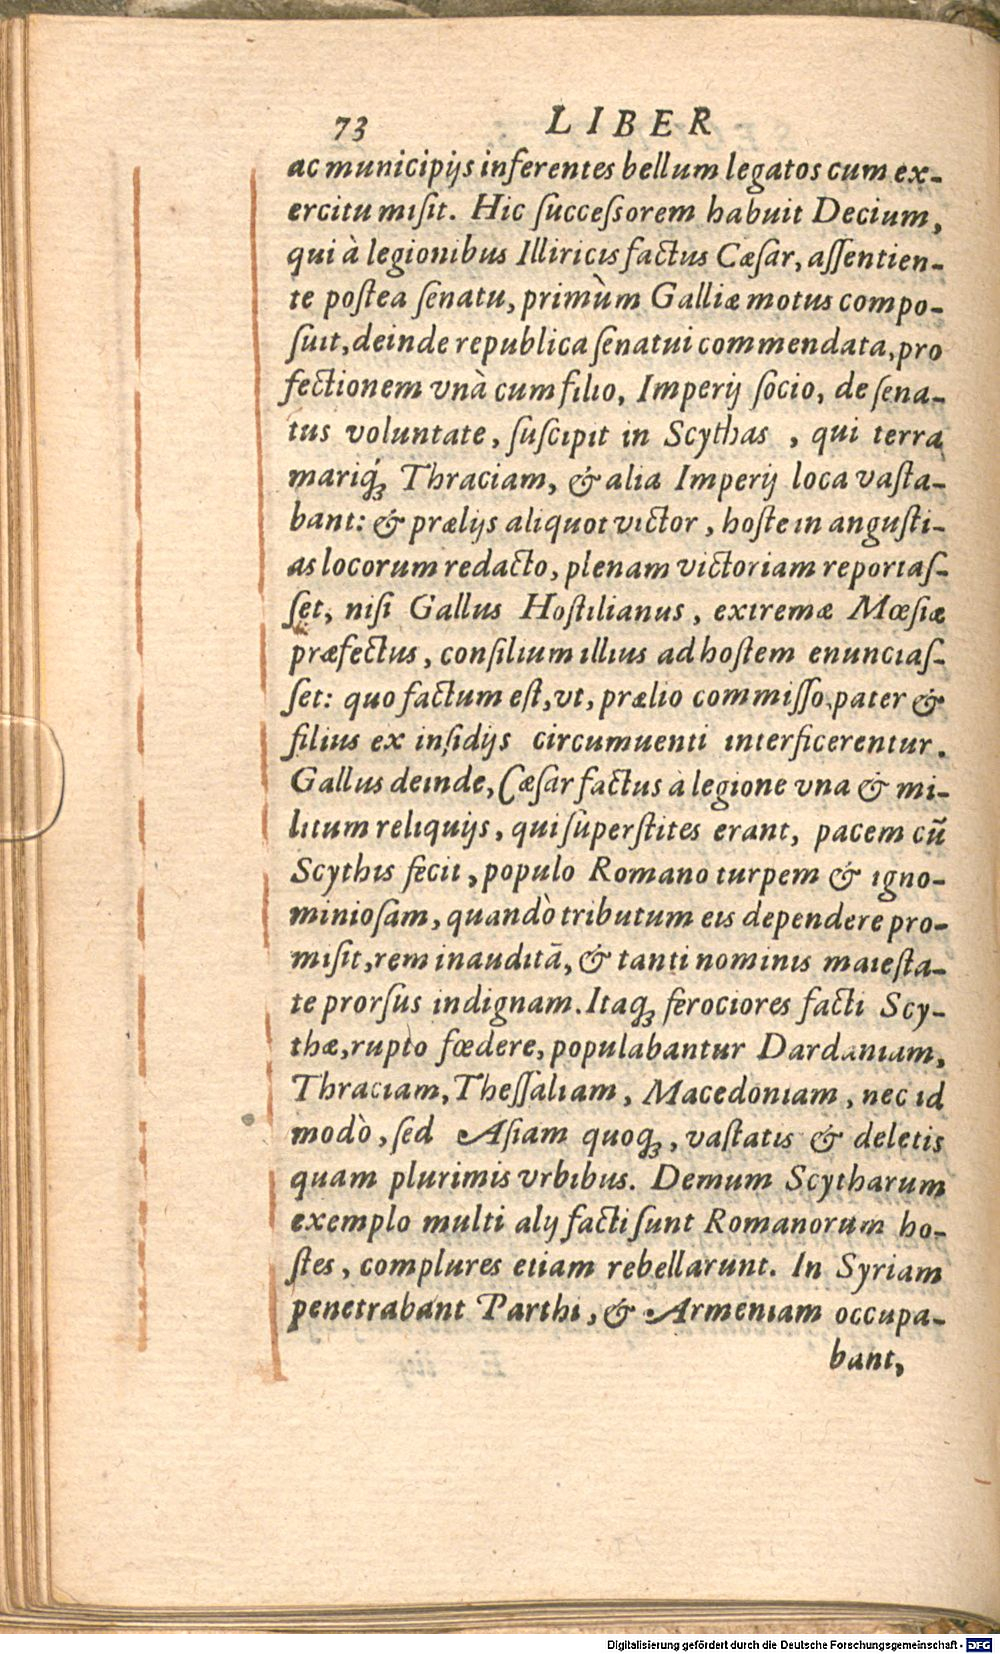 73 LIBER
ac municipijs inferentes bellum legatos cum ex-
ercitu misit. Hic succeſsorem habuit Decium,
qui à legionibus Illiricis factus Cæſar, aſſentien-
te poſtea ſenatu, primùm Galliæ motus compo-
ſuit, deinde republica ſenatui commendata, pro
fectionem vnà cum filio, Imperij ſocio, de ſena-
tus voluntate, ſuſcipit in Scythas, qui terra
mariq́ꝫ Thraciam, & alia Imperij loca vaſta-
bant: & prælijs aliquot victor, hoſte in anguſti-
as locorum redacto, plenam victoriam reportaſ-
ſet, niſi Gallus Hoſtilianus, extremæ Mœſiæ
præfectus, conſilium illius ad hoſtem enunciaſ-
ſet: quo factum eſt, vt, prælio commiſſo, pater &
filius ex inſidijs circumuenti interficerentur.
Gallus deinde, Cæſar factus à legione vna & mi-
litum reliquijs, qui ſuperſtites erant, pacem cū
Scythis fecit, populo Romano turpem & igno-
minioſam, quandò tributum eis dependere pro-
miſit, rem inauditā, & tanti nominis maieſta-
te prorſus indignam. Itaqꝫ ferociores facti Scy-
thæ, rupto fœdere, populabantur Dardaniam,
Thraciam, Theſſaliam, Macedoniam, nec id
modò, ſed Aſiam quoqꝫ, vaſtatis & deletis
quam plurimis vrbibus. Demum Scytharum
exemplo multi alij facti ſunt Romanorum ho-
ſtes, complures etiam rebellarunt. In Syriam
penetrabant Parthi, & Armeniam occupa-
bant,
Digitalisierung gefördert durch die Deutsche Forschungsgemeinschaft - DFG